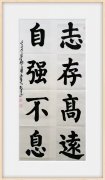 志存高遠
自强不息